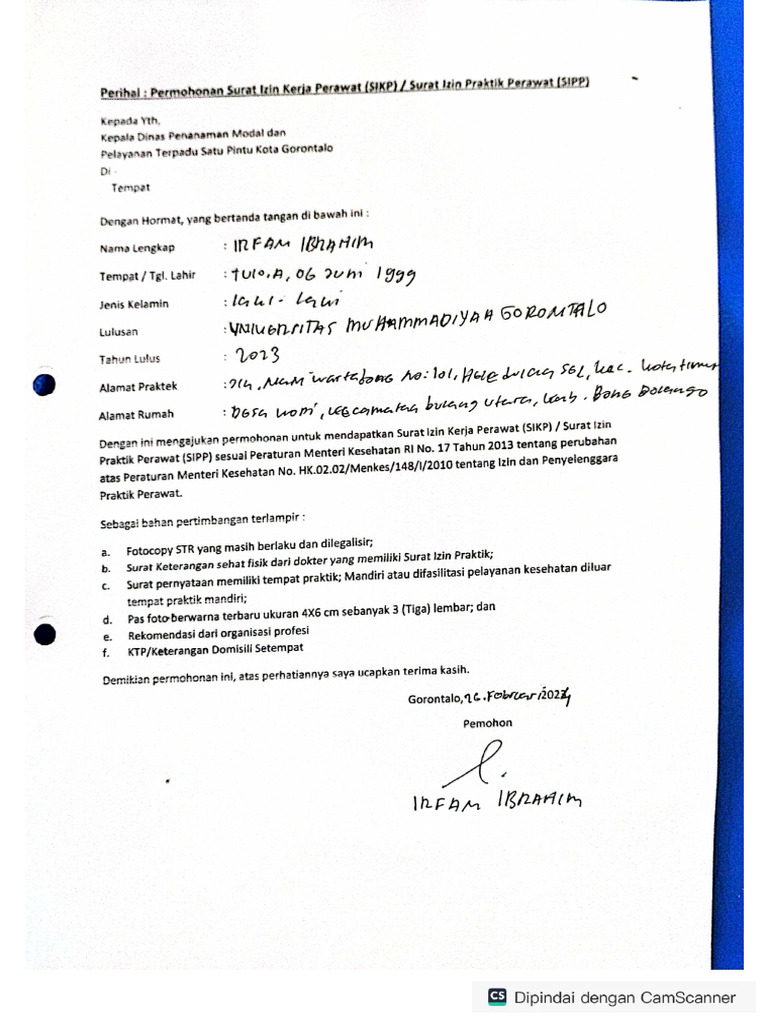 Perihal : Permohonan Surat Izin Kerja Perawat (SIKP) / Surat Izin Praktik Perawat (SIPP)
Kepada Yth,
Kepala Dinas Penanaman Modal dan
Pelayanan Terpadu Satu Pintu Kota Gorontalo
Di -
Tempat
Dengan Hormat, yang bertanda tangan di bawah ini :
Nama Lengkap : IRFAM IBRAHIM
Tempat / Tgl. Lahir : , 06 Juni 1999
Jenis Kelamin : Laki - Laki
Lulusan : UNIVERSITAS MUHAMMADIYAH GORONTALO
Tahun Lulus : 2023
Alamat Praktek : No: 101, Kec. Kota timur
Alamat Rumah : Desa , Kecamatan bulang utara, Kab. Bone Bolango
Dengan ini mengajukan permohonan untuk mendapatkan Surat Izin Kerja Perawat (SIKP) / Surat Izin
Praktik Perawat (SIPP) sesuai Peraturan Menteri Kesehatan RI No. 17 Tahun 2013 tentang perubahan
atas Peraturan Menteri Kesehatan No. HK.02.02/Menkes/148/I/2010 tentang Izin dan Penyelenggara
Praktik Perawat.
Sebagai bahan pertimbangan terlampir :
a. Fotocopy STR yang masih berlaku dan dilegalisir;
b. Surat Keterangan sehat fisik dari dokter yang memiliki Surat Izin Praktik;
c. Surat pernyataan memiliki tempat praktik; Mandiri atau difasilitasi pelayanan kesehatan diluar
tempat praktik mandiri;
d. Pas foto berwarna terbaru ukuran 4X6 cm sebanyak 3 (Tiga) lembar; dan
e. Rekomendasi dari organisasi profesi
f. KTP/Keterangan Domisili Setempat
Demikian permohonan ini, atas perhatiannya saya ucapkan terima kasih.
Gorontalo, 26. Februari 2024
Pemohon
IRFAM IBRAHIM
CS Dipindai dengan CamScanner